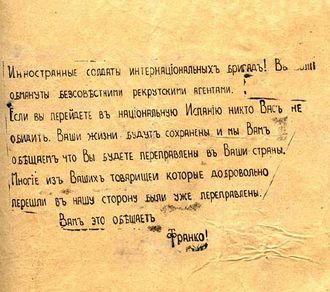 Инностранные солдаты интернаціональныхъ бригадъ! Вы были
обмануты безсовѣстними рекрутскими агентами.
Если вы перейдете въ національную Испанію никто Васъ не
обидитъ. Ваши жизни будутъ сохранены и мы Вамъ
обѣщаемъ что Вы будете переправлены въ Ваши страны.
Многіе изъ Вашихъ товарищей которые добровольно
перешли въ нашу сторону были уже переправлены.
Вамъ это обѣщаетъ
Франко!